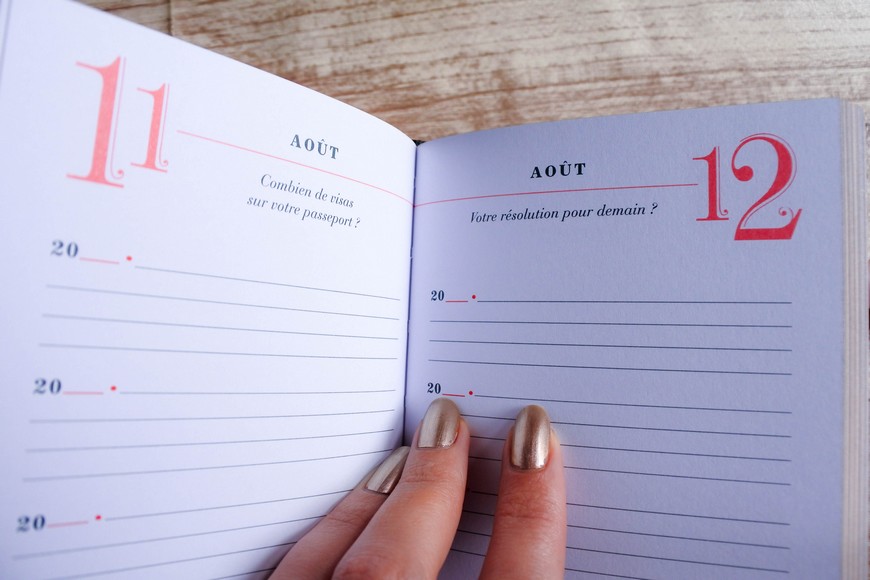 11
AOÛT
Combien de visas
sur votre passeport ?
20__ •
20__ •
20__ •
AOÛT
12
Votre résolution pour demain ?
20__ •
20__ •